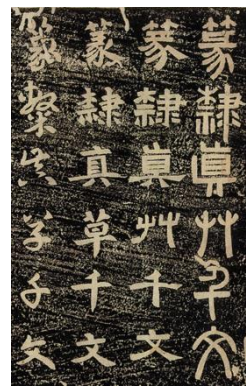 篆隸真艸千文
篆隸真艸千文
篆隸真草千文
篆隸真草千文